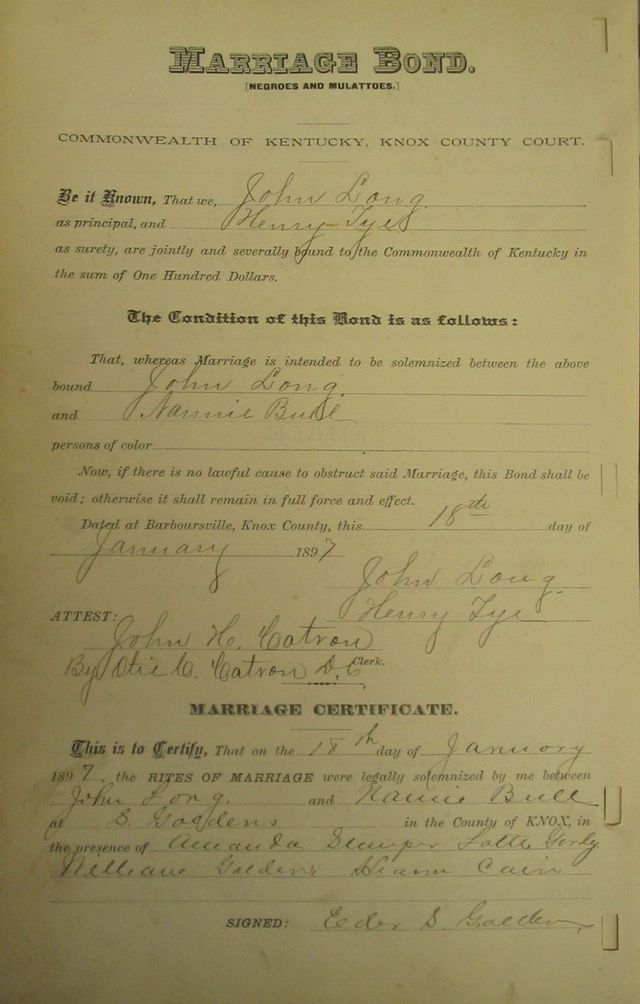 MARRIAGE BOND.
[NEGROES AND MULATTOES.]
COMMONWEALTH OF KENTUCKY, KNOX COUNTY COURT.
Be it Known, That we, John Long
as principal, and Henry Tye
as surety, are jointly and severally bound to the Commonwealth of Kentucky in
the sum of One Hundred Dollars.
The Condition of this Bond is as follows:
That, whereas Marriage is intended to be solemnized between the above
bound John Long
and Nannie Bull
persons of color
Now, if there is no lawful cause to obstruct said Marriage, this Bond shall be
void; otherwise it shall remain in full force and effect.
Dated at Barboursville, Knox County, this 18th day of
January 1897
John Long
Henry Tye
ATTEST:
John H. Catron
By Otie C. Catron D.C. Clerk.
MARRIAGE CERTIFICATE.
This is to Certify, That on the 18th day of January
1897, the RITES OF MARRIAGE were legally solemnized by me between
John Long. and Nannie Bull
at S. Goldens in the County of KNOX, in
the presence of Amanda
Cain
SIGNED: Elder S. Golden